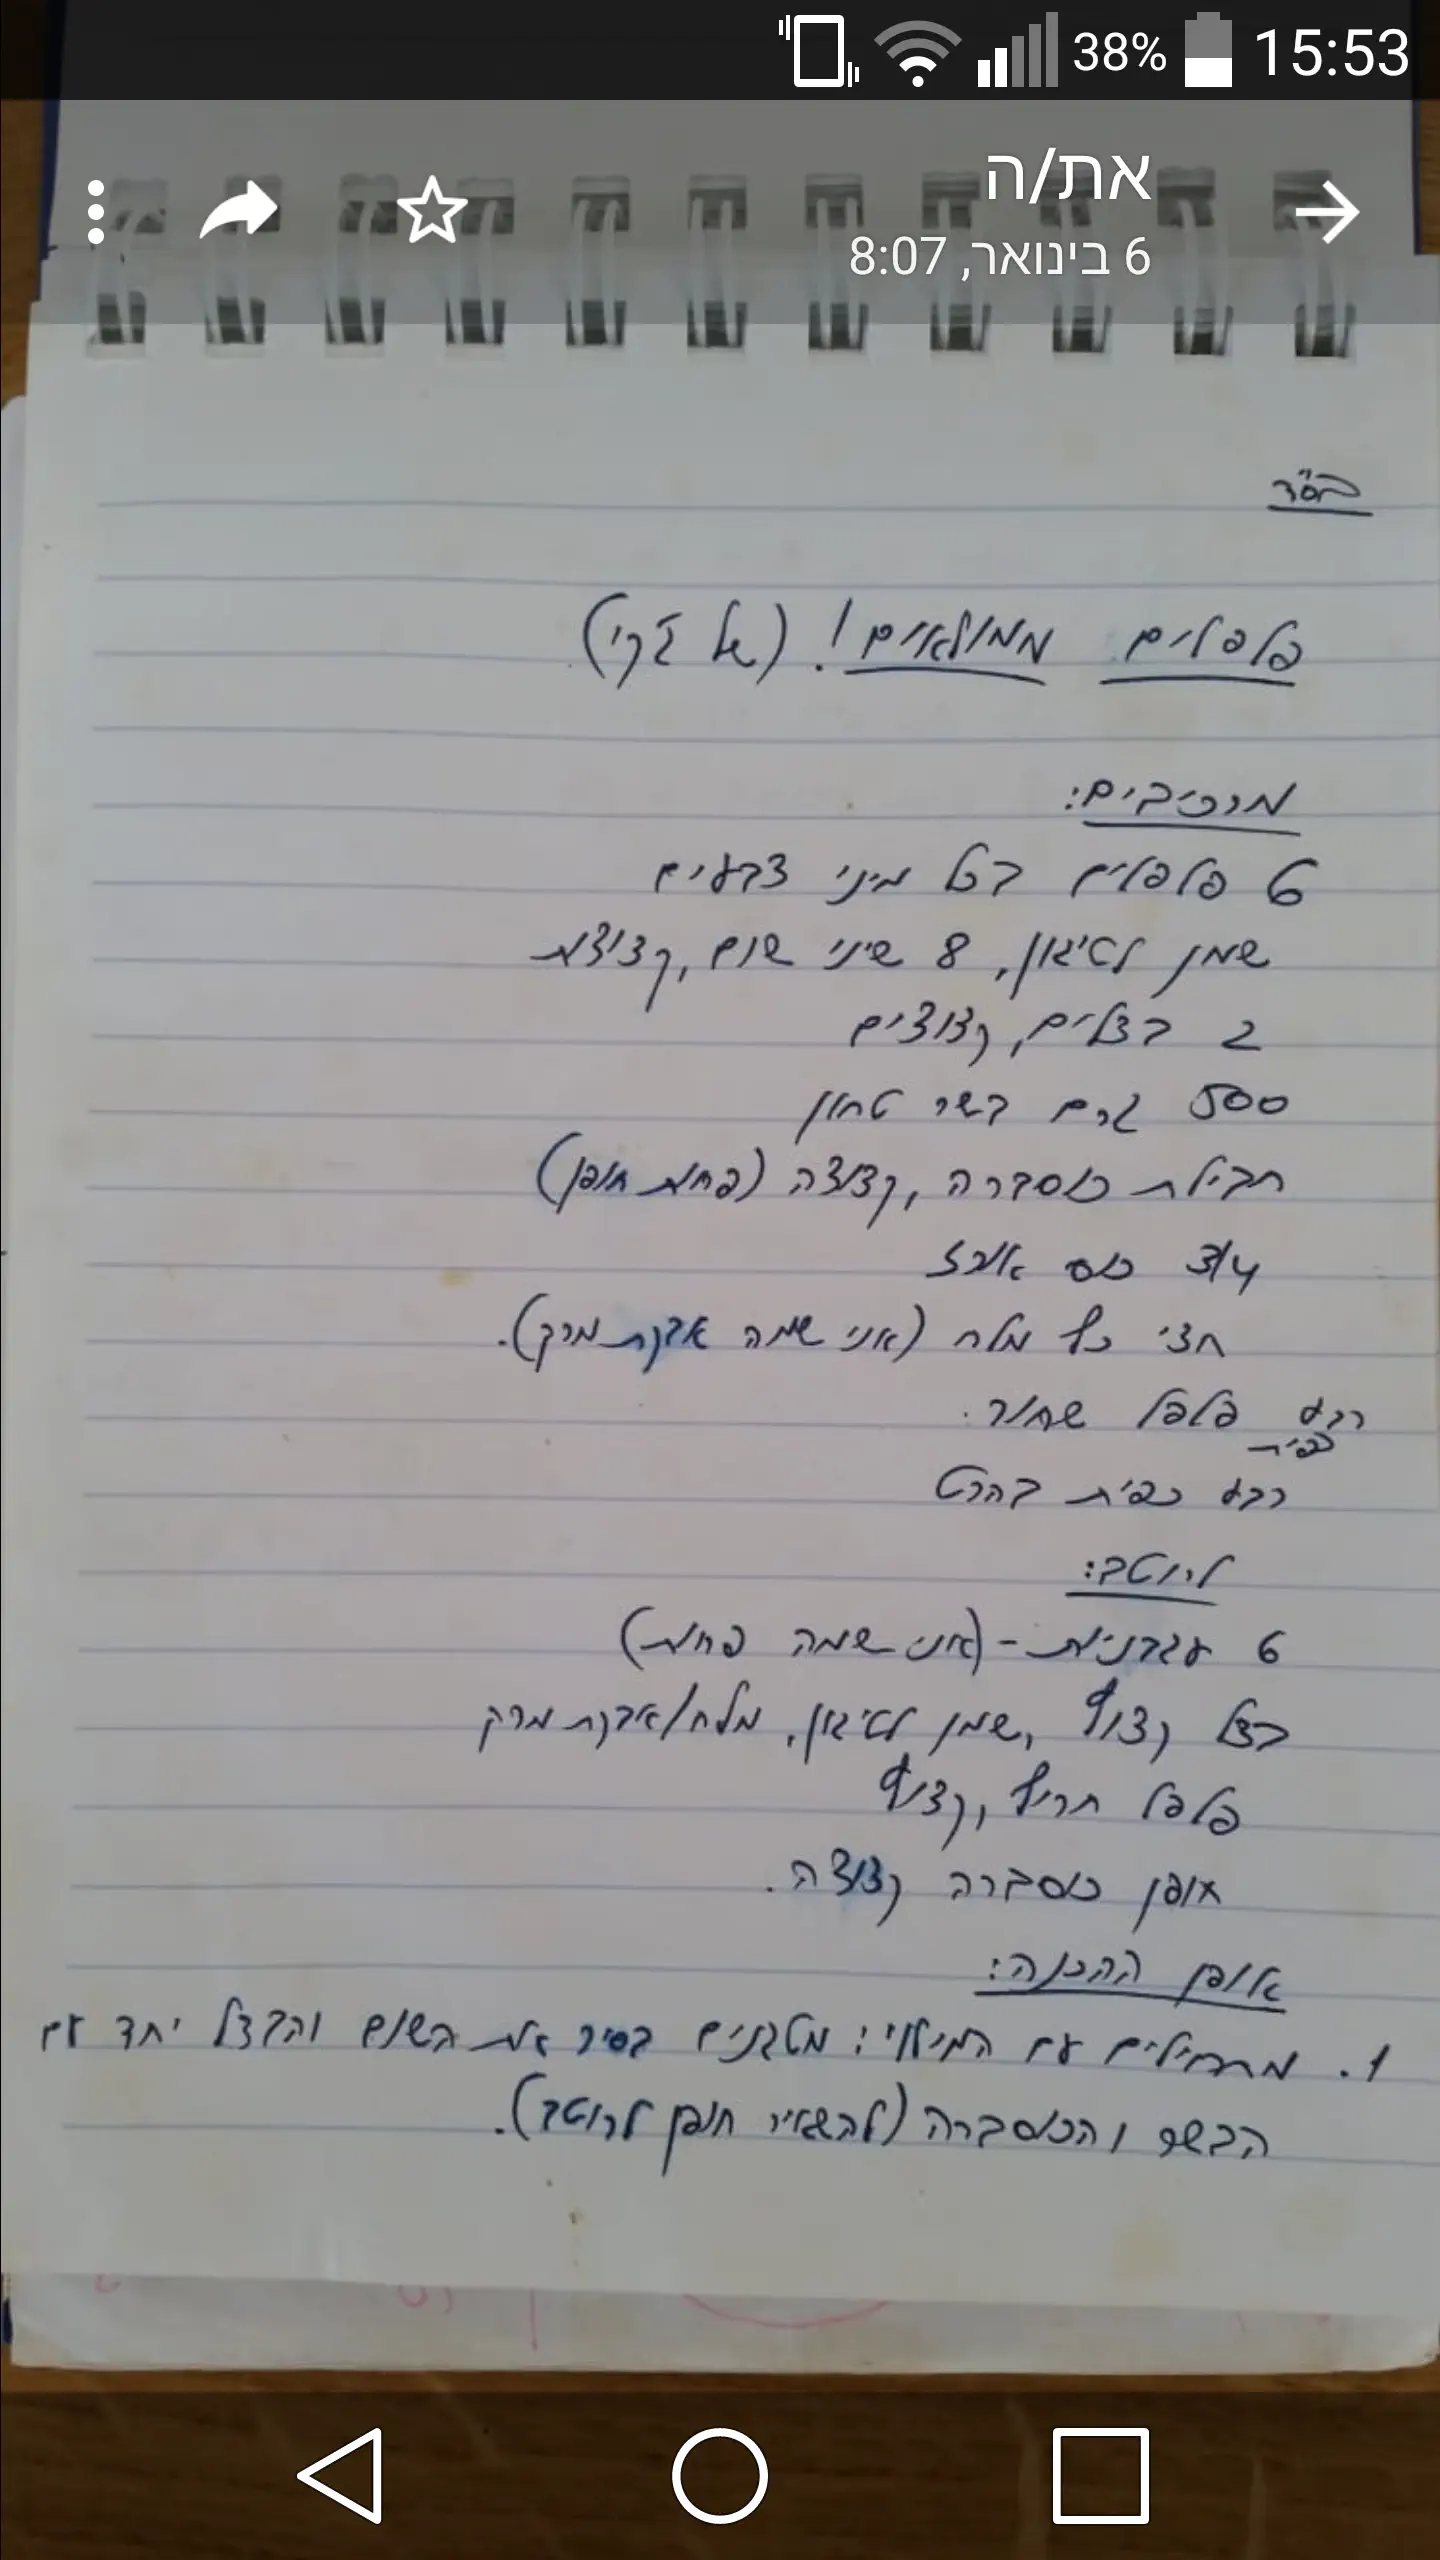 38% 15:53
את/ה
6 בינואר, 8:07
בס"ד
פלפלים ממולאים! (של ג'קי)
מרכיבים:
6 פלפלים בכל מיני צבעים
שמן לטיגון, 8 שיני שום, קצוצות
2 בצלים, קצוצים
500 גרם בשר טחון
חבילת כוסברה, קצוצה (פחות חופן)
3/4 כוס אורז
חצי כף מלח (אני שמה אבקת מרק).
רבע פלפל שחור.
כפית
רבע כפית בהרט
לרוטב:
6 עגבניות - (אני שמה פחות)
בצל קצוץ, שמן לטיגון, מלח/אבקת מרק
פלפל חריף, קצוץ
חופן כוסברה קצוצה.
אופן ההכנה:
1. מתחילים עם המילוי: מטגנים בסיר את השום והבצל יחד עם
הבשר והכוסברה (להשאיר חופן לרוטב).